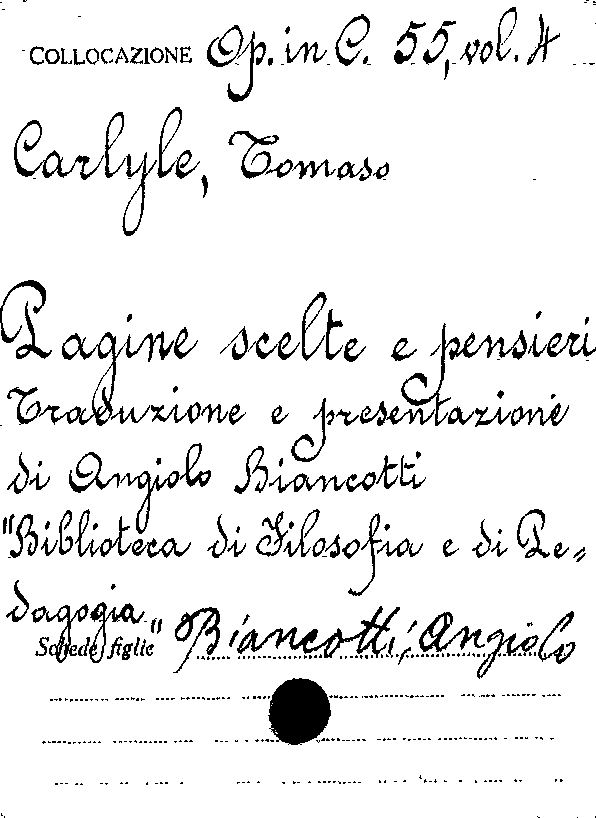 COLLOCAZIONE Op. in C. 55, vol. 4
Carlyle, Tomaso
Pagine scelte e pensieri
Traduzione e presentazione
di Angiolo Biancotti
"Biblioteca di Filosofia e di Pe=
dagogia"
Schede figlie Biancotti, Angiolo